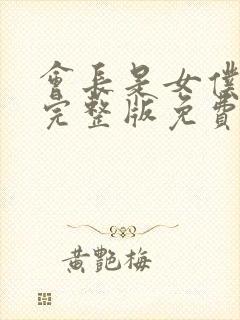 會長是女僕
完整版免費
黃艷梅